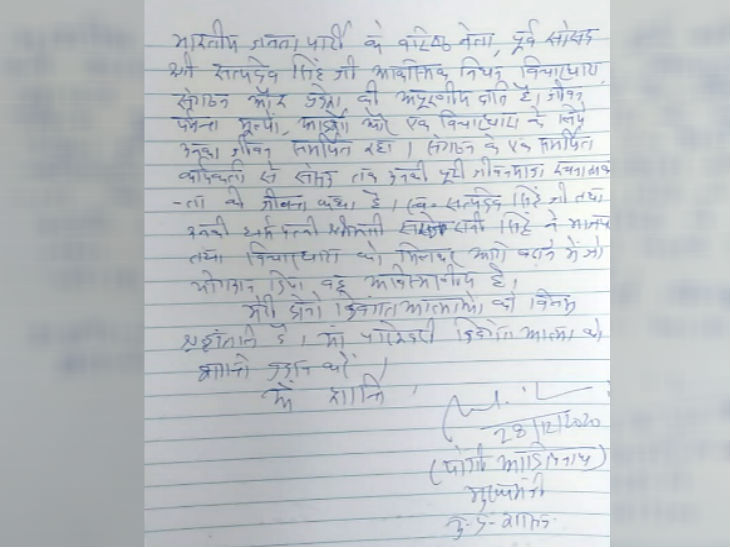 भारतीय जनता पार्टी के वरिष्ठ नेता, पूर्व सांसद
श्री सत्यदेव सिंह जी आकस्मिक निधन विचारधारा,
संगठन और प्रदेश की अपूरणीय क्षति है। जीवन
पर्यन्त मूल्यों, आदर्शों और एक विचारधारा के लिये
उनका जीवन समर्पित रहा। संगठन के एक समर्पित
कार्यकर्ता से सांसद तक उनकी पूरी जीवनयात्रा रचनात्मक
-ता की जीवन्त कथा है। स्व० सत्यदेव सिंह जी तथा
उनकी धर्म पत्नी श्रीमती रानी सिंह ने भाजपा
तथा विचारधारा को मिलकर आगे बढ़ाने में जो
योगदान दिया वह अविस्मरणीय है।
मेरी दोनों दिवंगत आत्माओं को विनम्र
श्रद्धांजलि है। माँ पाटेश्वरी दिवंगत आत्मा को
शान्ति प्रदान करें।
ॐ शान्ति
28/12/2020
(योगी आदित्यनाथ)
मुख्यमंत्री
उ-प्र-शासन